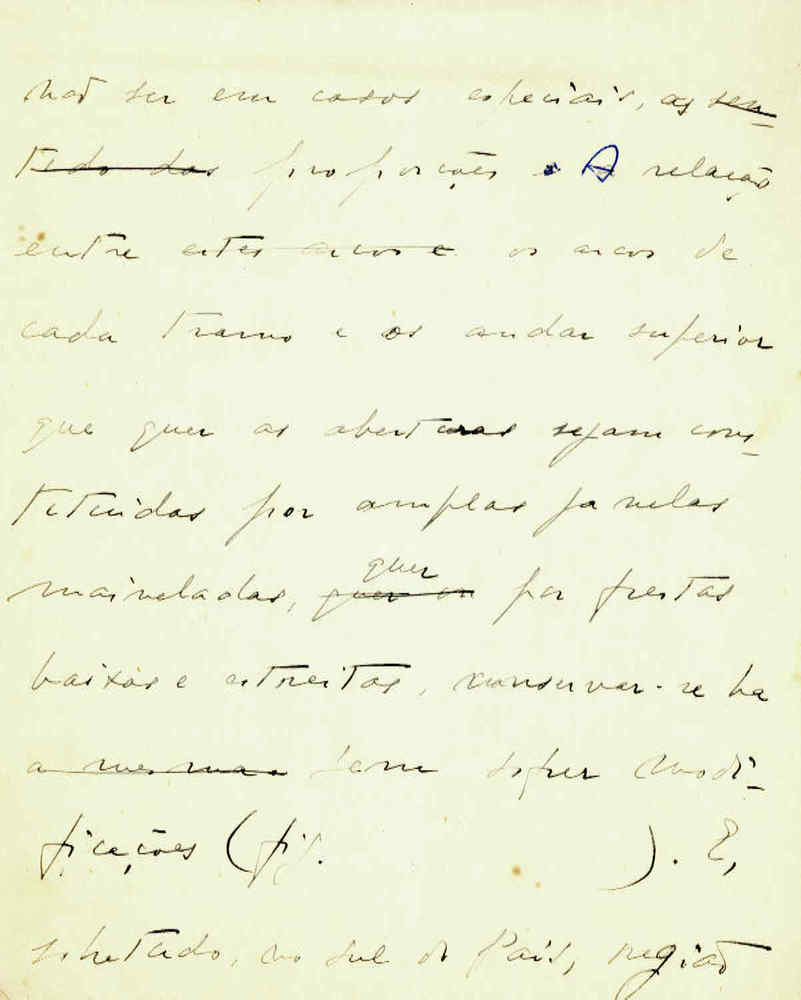 não ser em casos especiais, as sen-
tido das proporções. A relação
entre estes arcos e os arcos de
cada tramo e os andar superior
que quer as aberturas sejam cons-
tituidas por amplas janelas
maineladas, quer
quer ou por frestas
baixas e estreitas, conservar-se ha
a mesma sem sofrer modi-
ficações (fig. ). E,
sobretudo, no sul do País, região